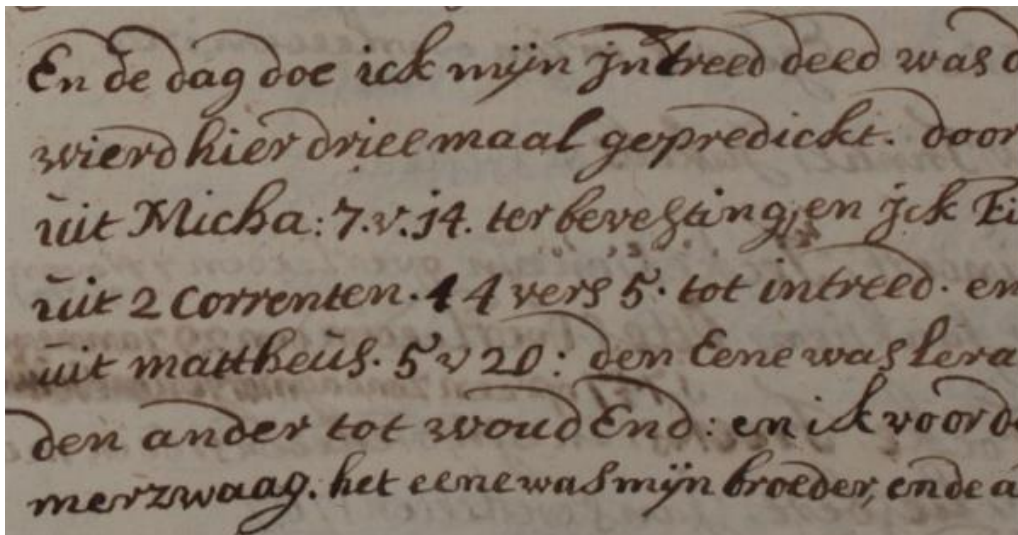 En de dag doe ick mijn jntreed deed was d
wierd hier drie maal gepredickt. door
uit Micha: 7. v. 14. ter bevesting, en jck Ei
uit 2 Correnten. 4 4 vers 5. tot intreed. en
uit mattheus. 5 v 20: den Eene was lera
den ander tot woud End: en ick voorde
merzwaag. het eene was mijn broeder, en de a